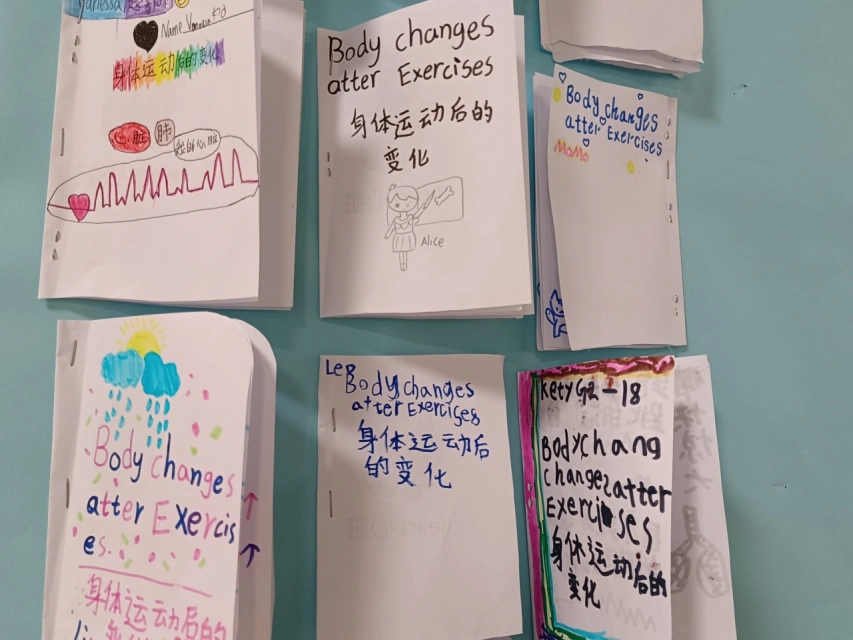 Vanessa
Name Vanessa
身体运动后的变化
心脏
肺
我的心脏
Body changes
atter Exercises
身体运动后的
变化
Alice
Body changes
atter Exercises
MoMo
Body changes
atter Exercis
es.
身体运动后的
变化
Leo
Body changes
atter Exercises
身体运动后
的变化
Kety G2-18
Bodychang
changesatter
Exercises
身体运动后的
变化